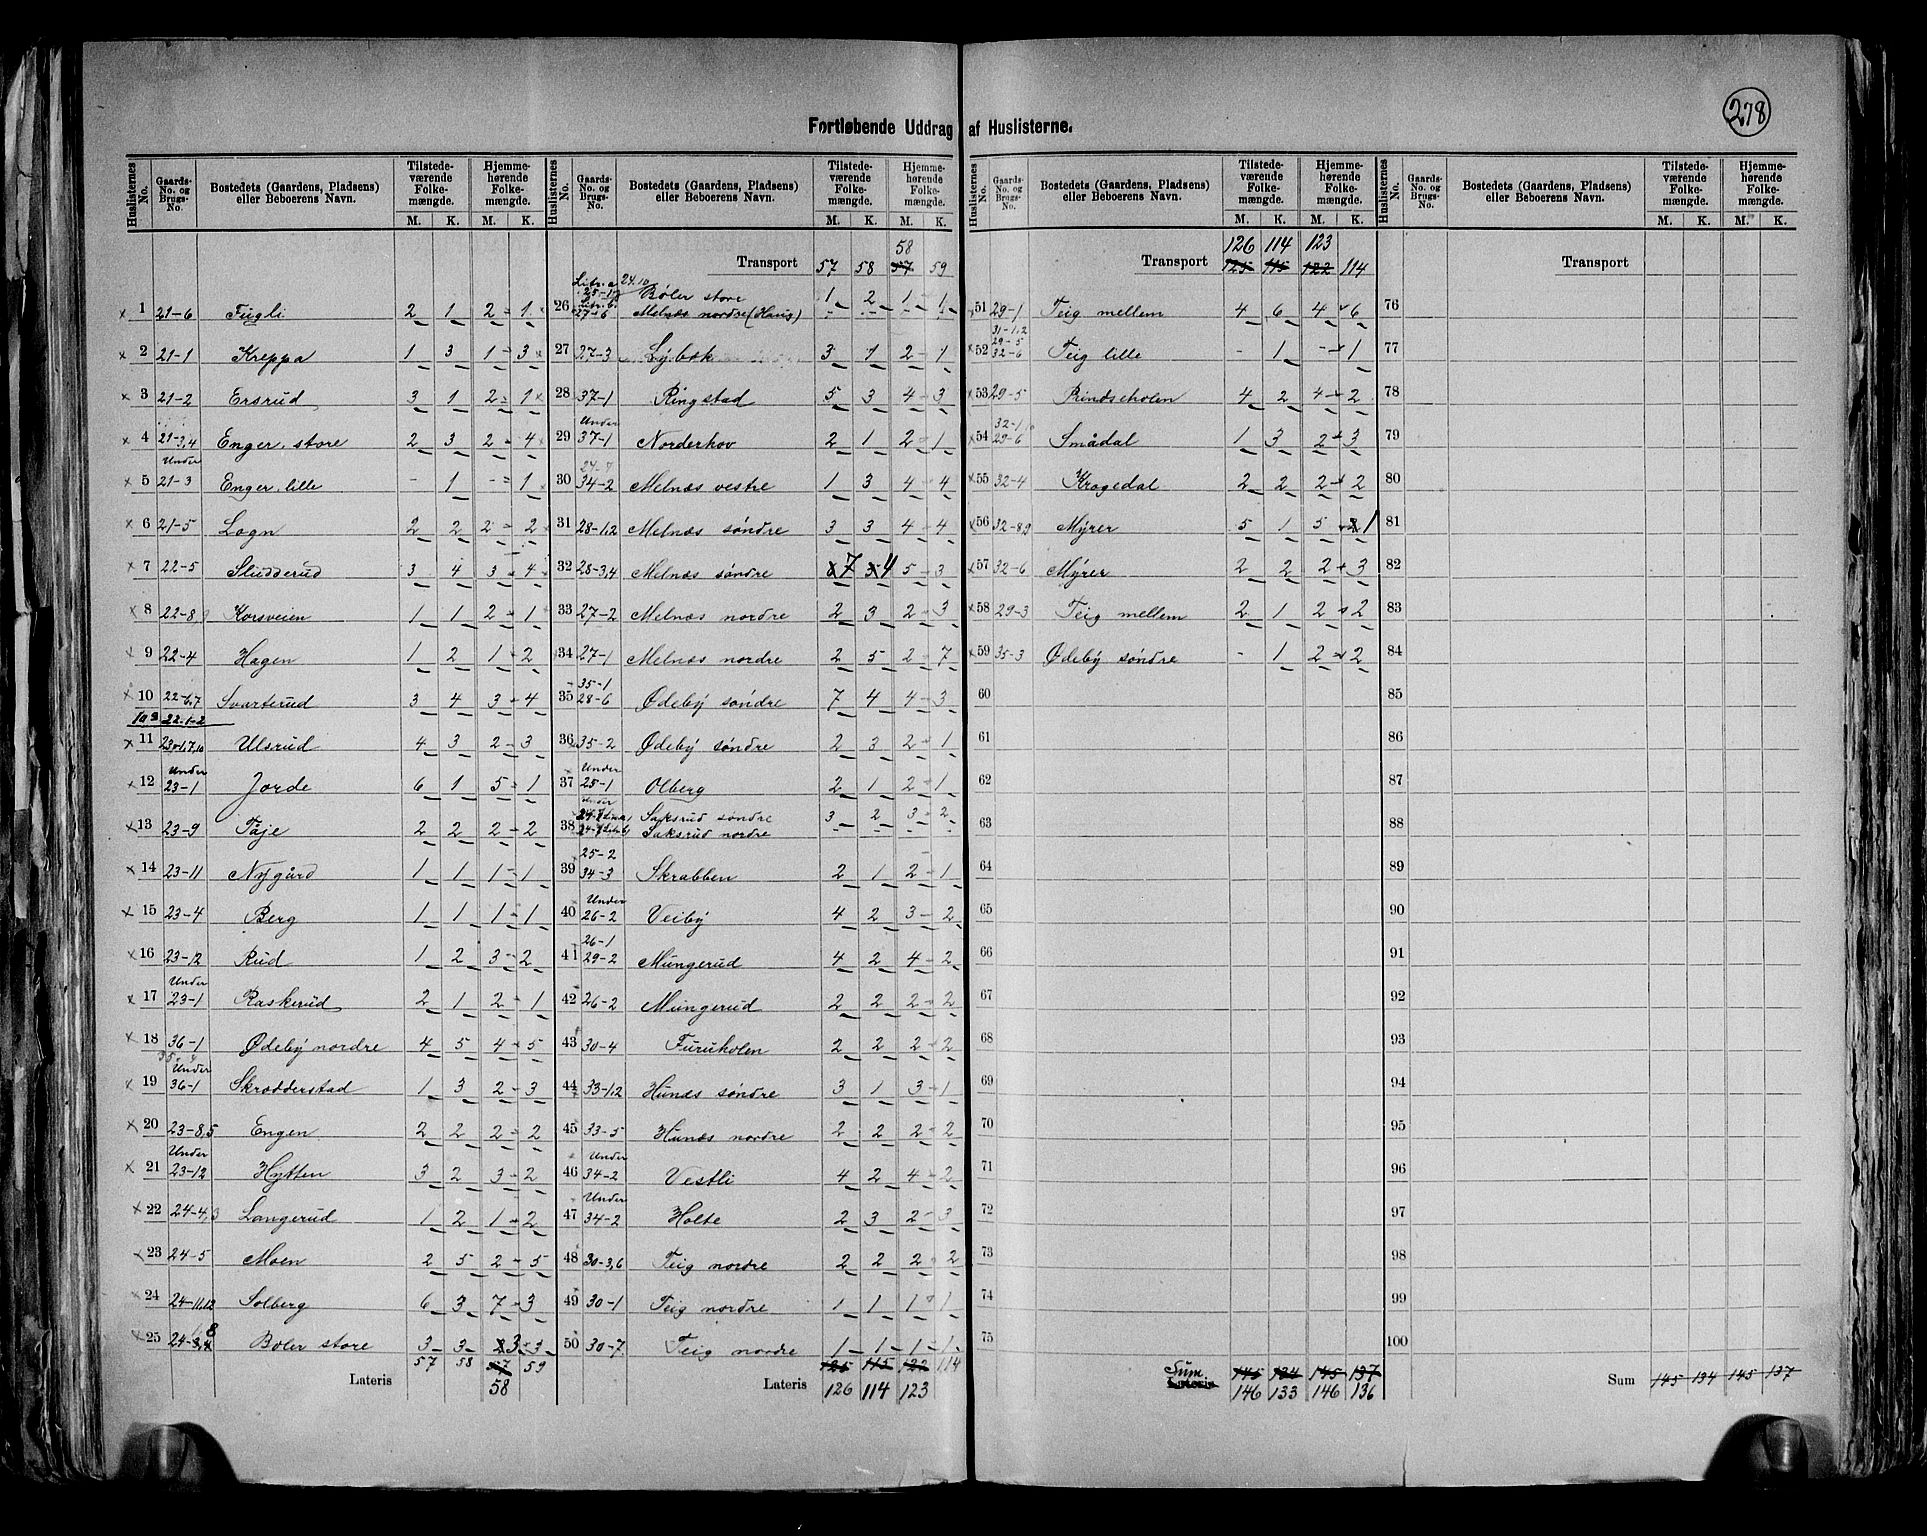 278
Fortløbende Uddrag af Huslisterne.
Huslisternes No. Gaards-No. og Brugs-No. Bostedets (Gaardens, Pladsens) eller Beboerens Navn. Tilstedeværende Folkemængde. M. K. Hjemmehørende Folkemængde. M. K.
1 21-6 Fugli 2 1 2 1
2 21-1 Kreppa 1 3 1 3
3 21-2 Ersrud 3 1 2 1
4 21-3,4 Enger, store 2 3 2 4
5 Under 21-3 Enger, lille - 1 - 1
6 21-5 Logn 2 2 2 2
7 22-5 Sludderud 3 4 3 4
8 22-8,9 Korsveien 1 1 2 1
9 22-4 Hagen 1 2 1 2
10 22-6,7 Svarterud 3 4 3 4
22-1-2
11 23-1,7,10 Ulsrud 4 3 2 3
12 Under 23-1 Jorde 6 1 5 1
13 23-9 Taje 2 2 2 2
14 23-11 Nygård 1 1 1 1
15 23-4 Berg 1 1 1 1
16 23-12 Rud 1 2 3 2
17 Under 23-1 Raskerud 2 1 2 1
18 36-1 Ødeby nordre 4 5 4 5
19 Under 36-1 Skrædderstad 1 3 2 3
20 23-8,5 Engen 2 2 2 2
21 Under 23-12 Hytten 3 2 3 2
22 24-4,3 Langerud 1 2 1 2
23 24-5 Moen 2 5 2 5
24 24-11,12 Solberg 6 3 7 3
25 24-8 Bøler store 3 3 3 3
Lateris 57 58 57 59
58
Transport 57 58 57 59
58
26 Litr. a 25-1 24.10 Bøler store 1 2 1 1
Litr. b. 27-6 Melnæs nordre (Haug)
27 27-3 Lybæk 3 1 2 1
28 37-1 Ringstad 5 3 4 3
29 Under 37-1 Norderhov 2 1 2 1
30 34-2 Melnæs vestre 1 3 4 4
31 28-1,2 Melnæs søndre 3 3 4 4
32 28-3,4 Melnæs søndre 7 4 5 3
33 27-2 Melnæs nordre 2 3 2 3
34 27-1 Melnæs nordre 2 5 2 7
35 35-1 28-6 Ødeby søndre 7 4 4 3
36 35-2 Ødeby søndre 2 3 2 1
37 Under 25-1 Olberg 2 1 2 1
38 Under Saksrud søndre 3 2 3 2
Saksrud nordre
39 25-2 34-3 Skrabben 2 1 2 1
40 Under 26-2 Veiby 4 2 3 2
41 26-1 29-2 Mungerud 4 2 4 2
42 26-2 Mungerud 2 2 2 2
43 30-4 Furuholen 2 2 2 2
44 33-1,2 Hunæs søndre 3 1 3 1
45 33-5 Hunæs nordre 2 2 2 2
46 Under 34-2 Vestli 4 2 4 2
47 Under 34-2 Holte 2 3 2 3
48 30-3,6 Teig nordre 2 2 2 2
49 30-1 Teig nordre 1 1 1 1
50 30-7 Teig nordre 1 1 1 1
Lateris 125 115 122 114
126 114 123
126 114 123
Transport 125 115 122 114
51 29-1 Teig mellem 4 6 4 6
52 31-1,2 29-5 32-6 Teig lille - 1 - 1
53 29-5 Rindseholen 4 2 4 2
54 32-1 29-6 Smådal 1 3 2 3
55 32-4 Krogedal 2 2 2 2
56 32-8,9 Myrer 5 1 5 1
57 32-6 Myrer 2 2 2 3
58 29-3 Teig mellem 2 1 2 2
59 35-3 Ødeby søndre - 1 2 2
60
61
62
63
64
65
66
67
68
69
70
71
72
73
74
75
Sum Lateris 145 134 145 137
146 133 146 136
Transport
76
77
78
79
80
81
82
83
84
85
86
87
88
89
90
91
92
93
94
95
96
97
98
99
100
Sum 145 134 145 137